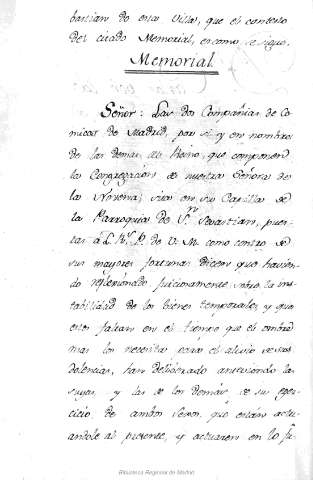 bastian de esta Villa, que el contexto
del citado Memorial, es como se sigue.
Memorial.
Señor: Las dos Compañias de Co-
micos de Madrid, por si y en nombre
de las demas del Reino, que componen
la Congregacion de nuestra Señora de
la Novena, sita en su Capilla de
la Parroquia de Sn. Sevastian, pues-
tas á L. Rs. P. de V. M. como centro de
sus mayores fortunas dicen que havien-
do reflexionado juiciosamente sobre la ins-
tabilidad de los bienes temporales, y que
estos faltan en el tiempo que el hombre
mas los necesita para el alivio de sus
dolencias, han deliberado
suyas, y las de los demás de su exer-
cicio de ambos Sexos, que están actu-
andole al presente, y actuaren en lo fu-
Biblioteca Regional de Madrid